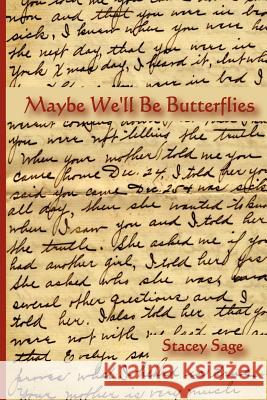 You told me you can
sick, I knew when you were
the next day, that you were in
York Xmas day, I heard it, but what
were in bed I
Maybe We'll Be Butterflies
weren't coming
you were not telling the truth
When your mother told me you
came home Dec. 24, I told her you
said you came Dec. 25 & was sick
all day, then she wanted to know
when I saw you and I told her
the truth. She asked me if you
had another girl, I told her yes
she asked who she was,
several other questions and I
told her. I also told her that you
were not with me last eve and
that Evelyn
Stacey Sage
Your mother is very much